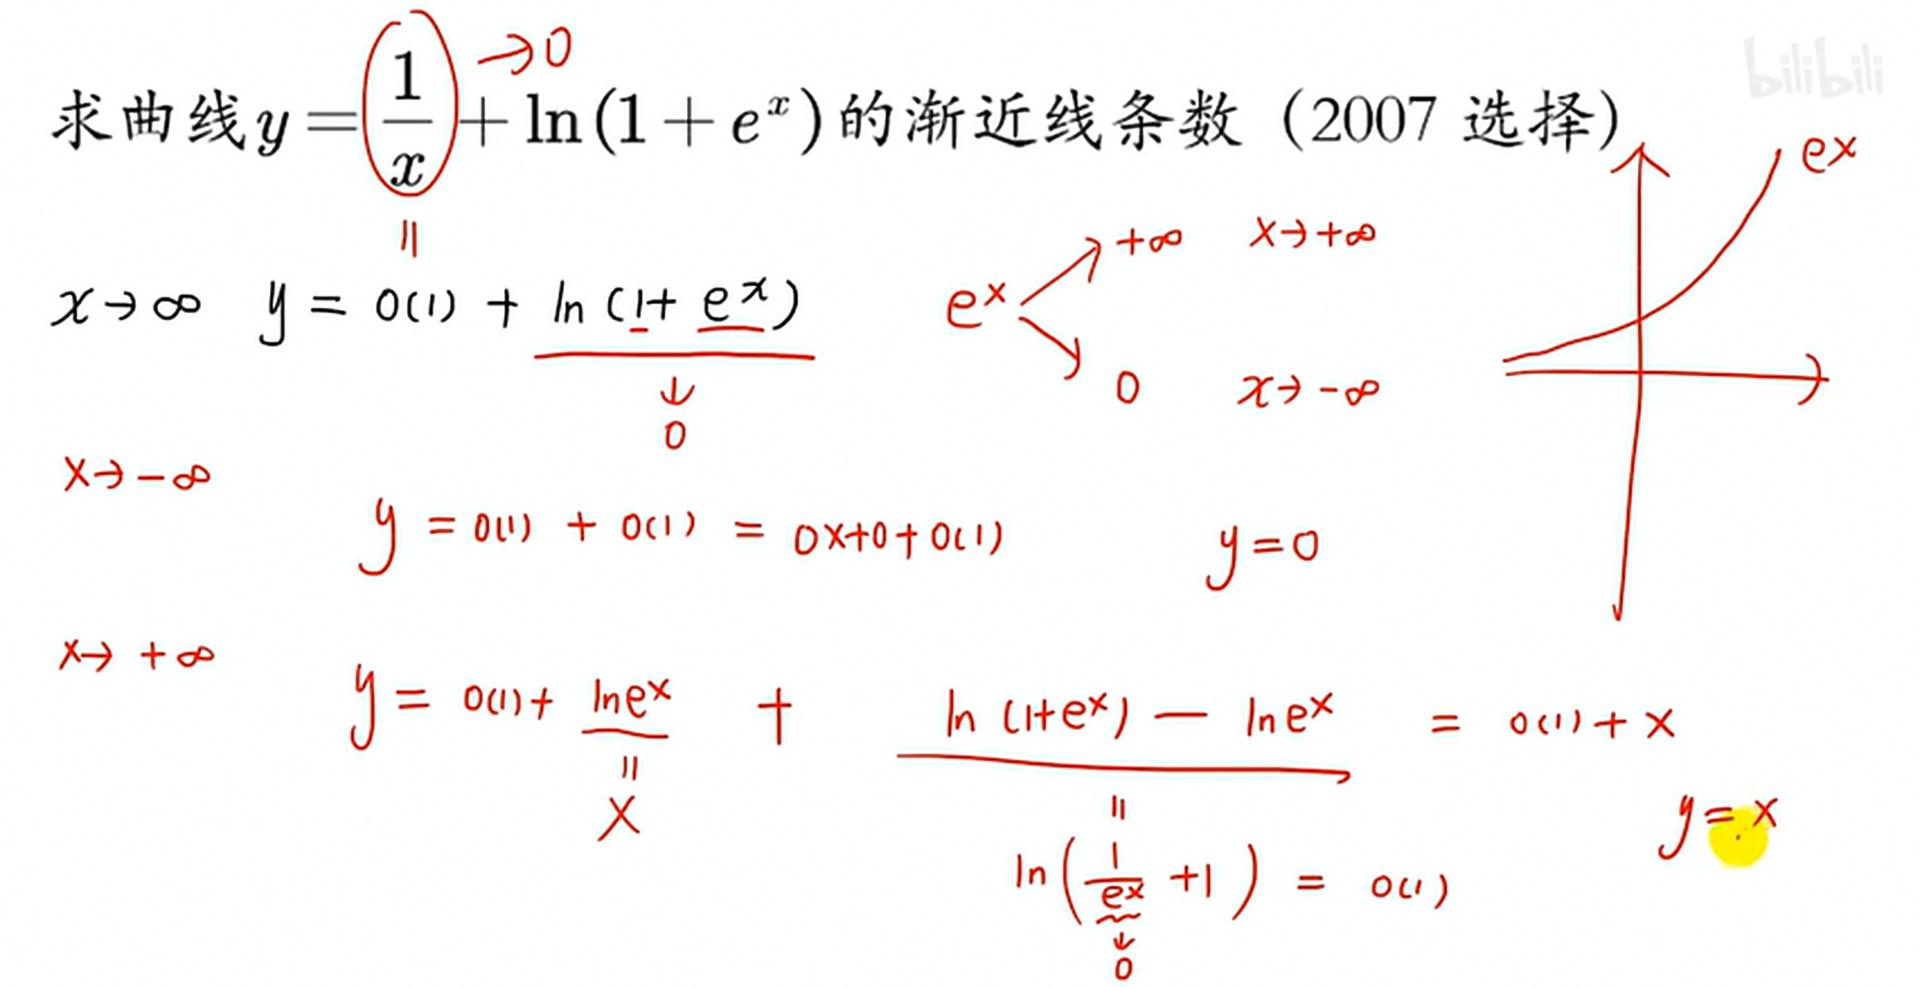 bilibili
求曲线 y = 1/x + ln(1 + e^x) 的渐近线条数（2007 选择）
→0
e^x
||
e^x ↗ +∞ x→+∞
↘ 0 x→-∞
x→∞ y = o(1) + ln(1+ e^x)
↓
0
x→-∞
y = o(1) + o(1) = 0x+0+o(1) y=0
x→ +∞
y = o(1) + lne^x + ln(1+e^x) — lne^x = o(1) + x
||
x
y=x
||
ln(1/e^x +1) = o(1)
↓
0